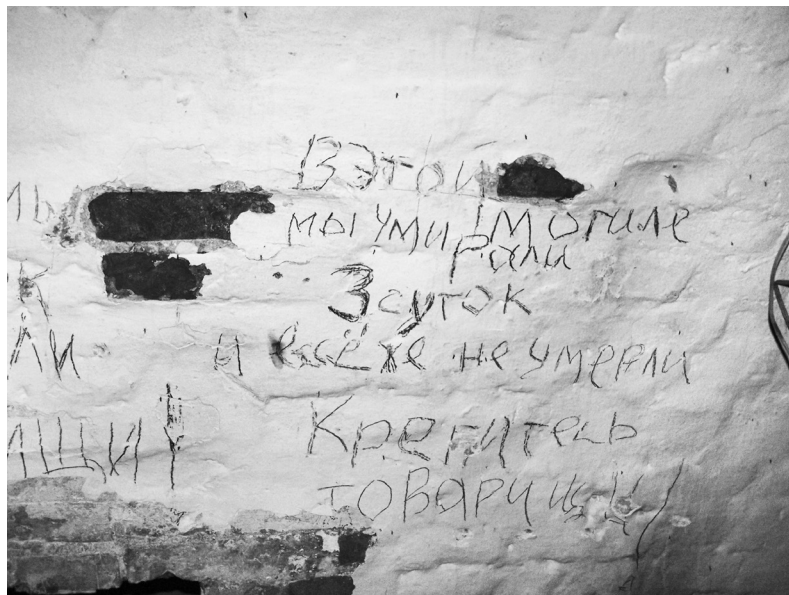 ль
К
ли
ищи!
В этой
могиле
мы умирали
3 суток
и всё же не умерли
Крепитесь
товарищи!